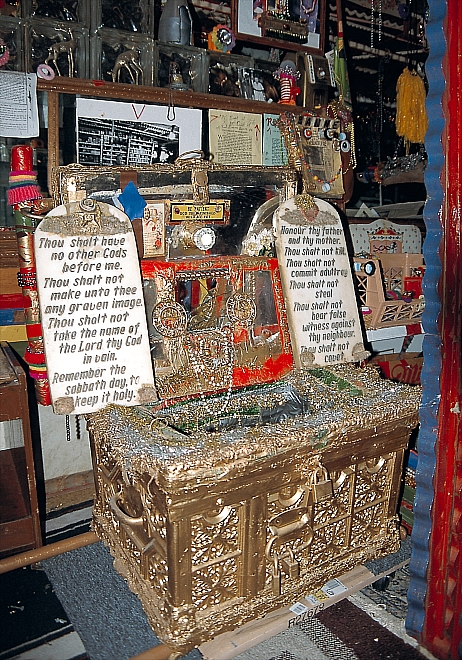 Thou shalt have
no other Gods
before me.
Thou shalt not
make unto thee
any graven image.
Thou shalt not
take the name of
the Lord thy God
in vain.
Remember the
sabbath day, to
keep it holy.
Honour thy father
and thy mother.
Thou shalt not kill.
Thou shalt not
commit adultry
Thou shalt not
steal
Thou shalt not
bear false
witness against
thy neighbour.
Thou shalt not
covet